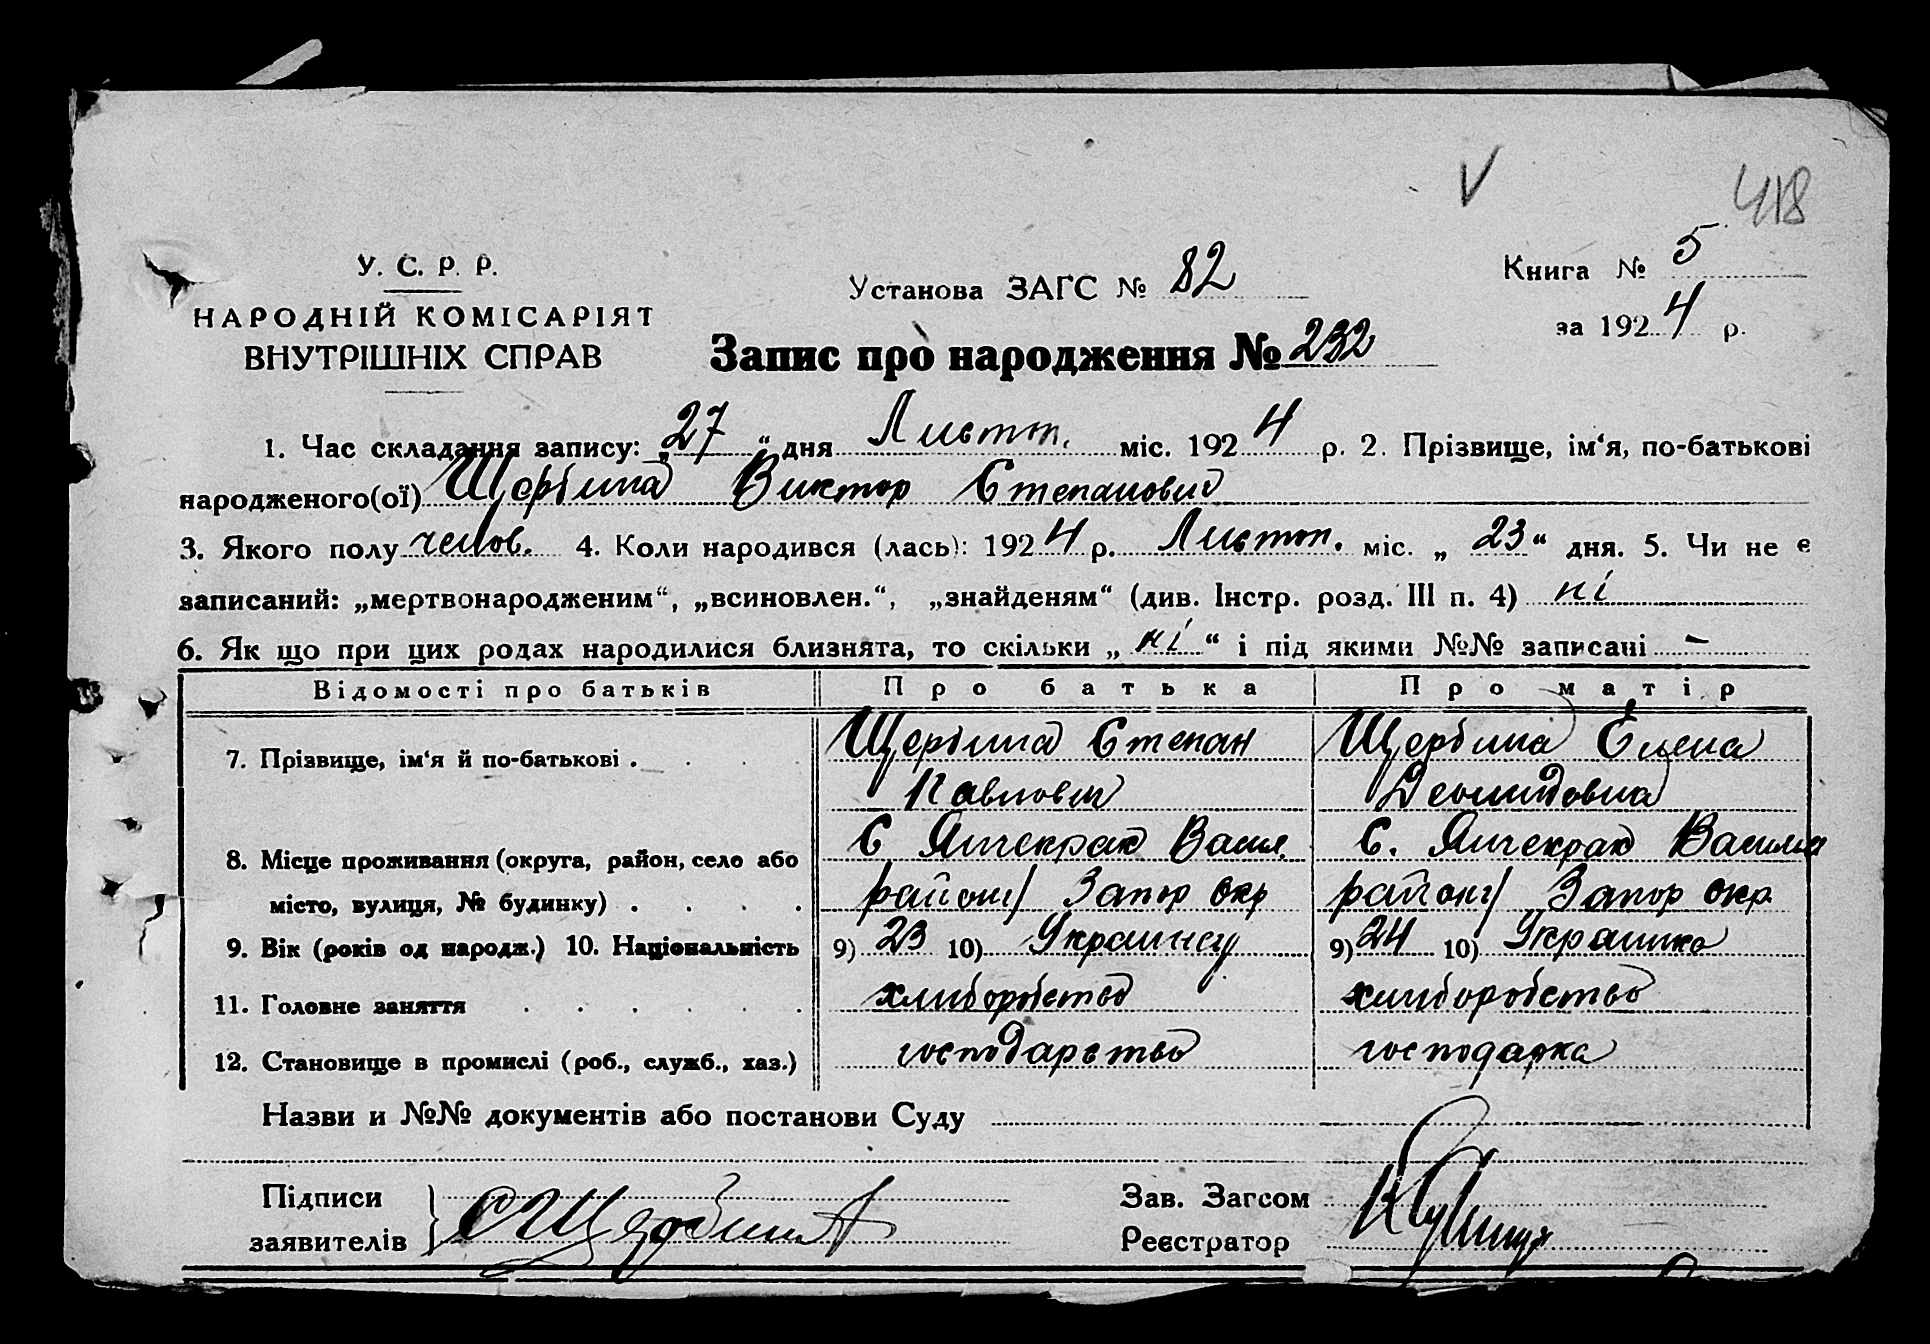 V
418
У. С. Р. Р.
НАРОДНІЙ КОМІСАРІЯТ
ВНУТРІШНІХ СПРАВ
Установа ЗАГС № 82
Книга № 5
за 1924 р.
Запис про народження № 232
1. Час складання запису: „27“ дня Листоп. міс. 1924 р. 2. Прізвище, ім‘я, по-батькові
народженого(ої) Щербина Виктор Степанович
3. Якого полу челов. 4. Коли народився (лась): 1924 р. Листоп. міс. „23“ дня. 5. Чи не є
записаний: „мертвонародженим“, „всиновлен.“, „знайденям“ (див. Інстр. розд. III п. 4) ні
6. Як що при цих родах народилися близнята, то скільки „ні“ і під якими №№ записані –
Відомості про батьків Про батька Про матір
7. Прізвище, ім‘я й по-батькові . . . . Щербина Степан Щербина Елена
Павлович Деомидовна
8. Місце проживання (округа, район, село або С Янчекрак Васил. С. Янчекрак Василів
місто, вулиця, № будинку) . . . . району Запор окр району Запор окр.
9. Вік (років од народж.) 10. Національність 9) 23 10) Украинец 9) 24 10) Украинка
11. Головне заняття . . . . . . хлиборобство хлиборобство
12. Становище в промислі (роб., служб., хаз.) господарство господарка
Назви и №№ документів або постанови Суду
Підписи
заявителів } С Щербина
Зав. Загсом
Реєстратор